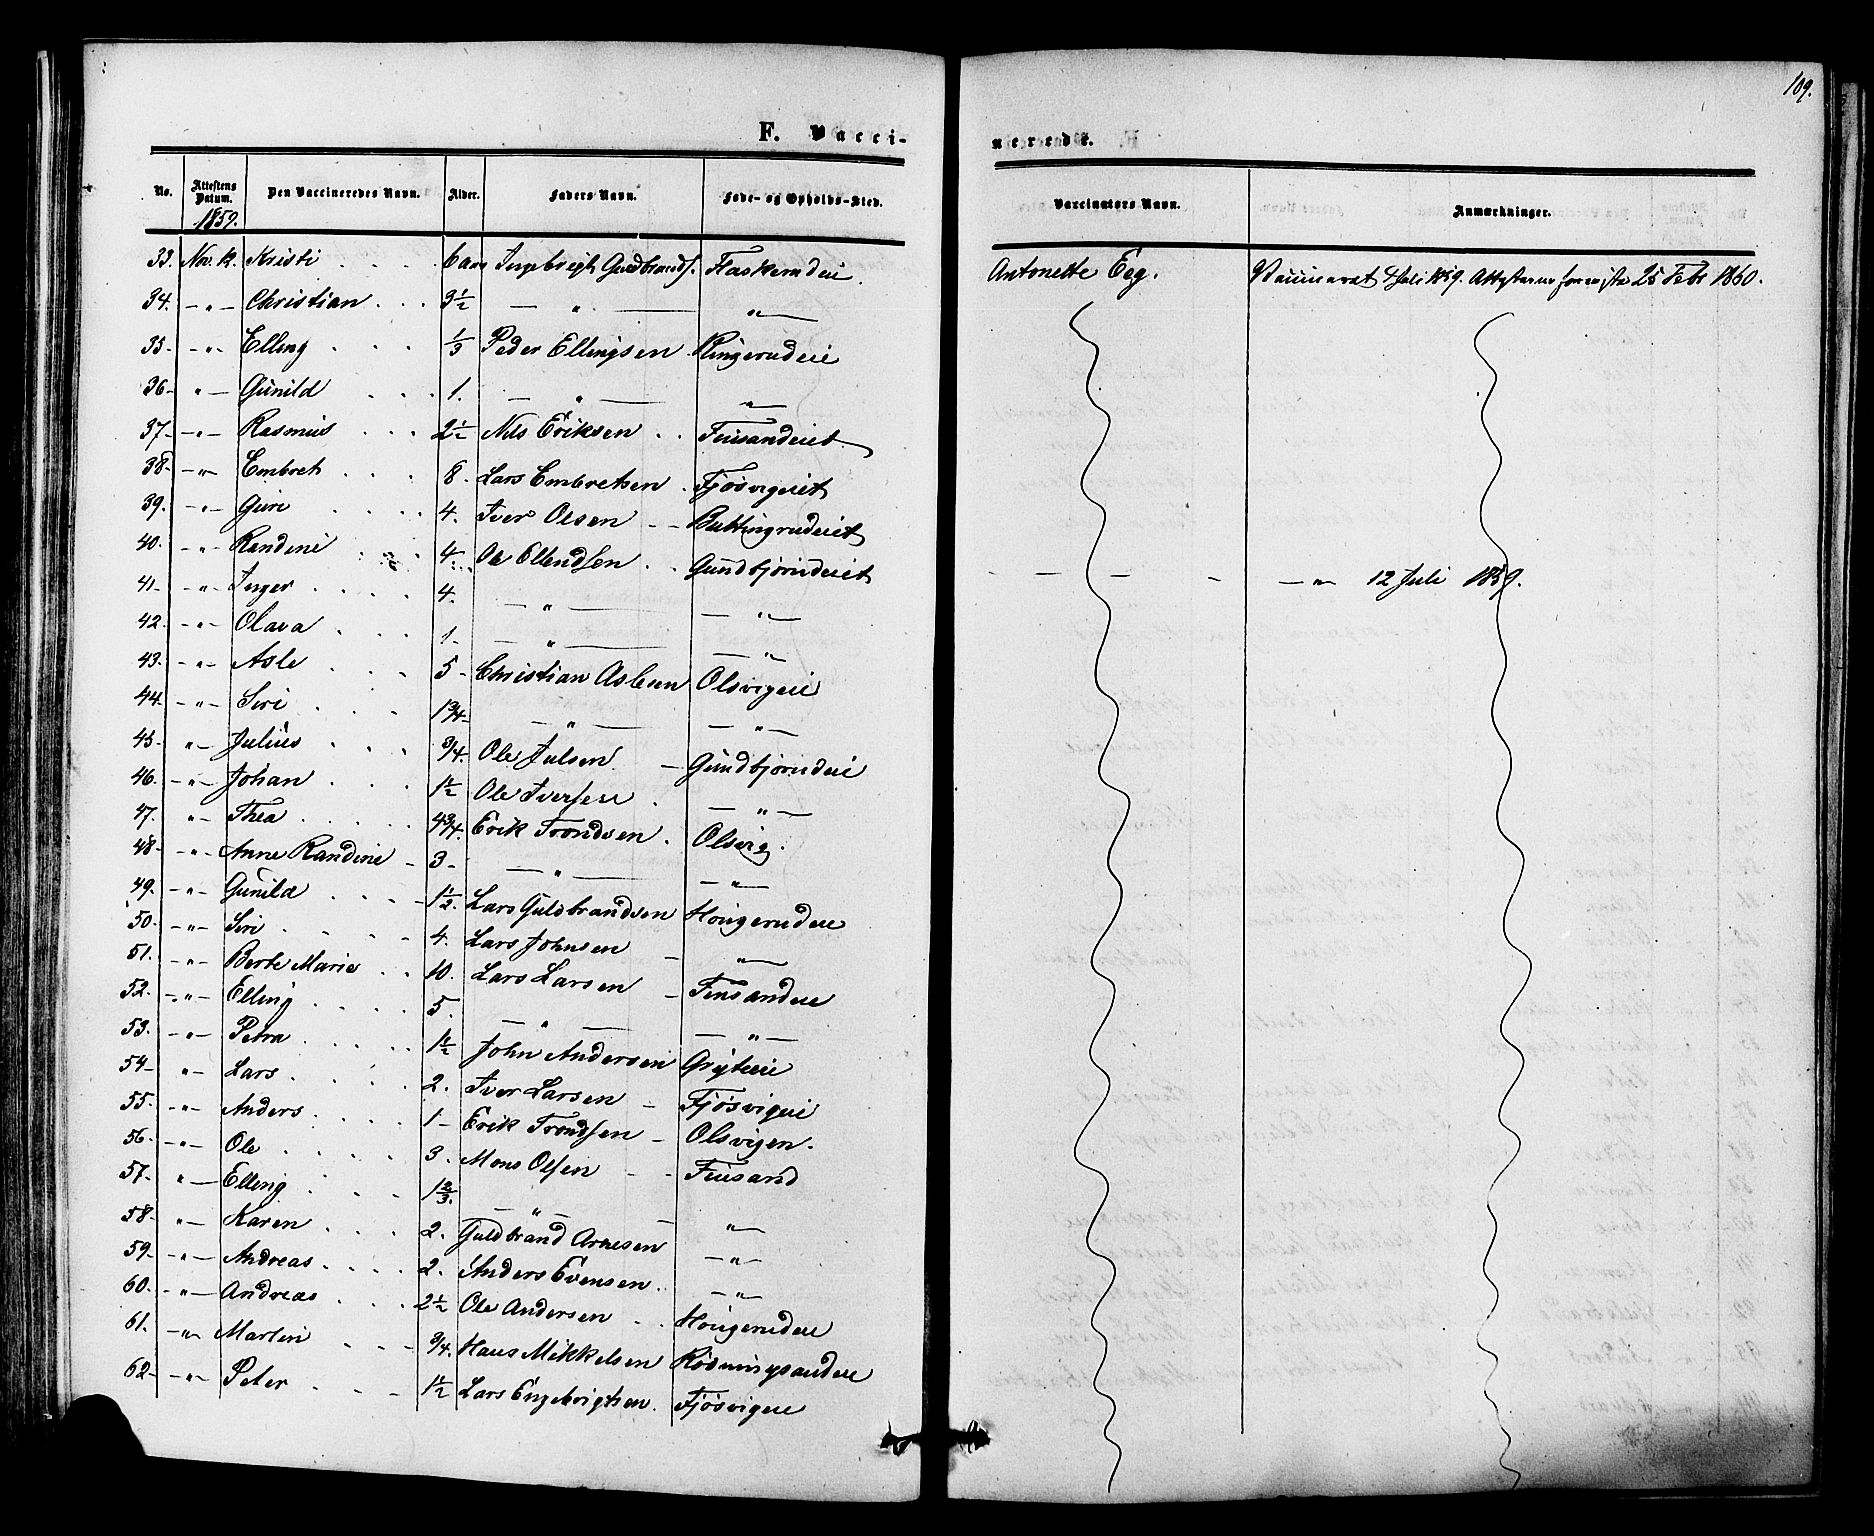 109.
F. Vacci-
nerede.
No. Attestens Datum. Den Vaccineredes Navn. Alder. Faders Navn. Føde- og Opholds-Sted. Vaccinators Navn. Anmærkninger.
1859.
33. Nov. 12. Kristi 6 aar Ingebrigt Gudbrands. Antonette Eeg. 4 Juli 1859. 25 Febr 1860.
34. - " - Christian 3 1/2 - " - - " -
35. - " - Elling 1/3 Peder Ellingsen Ringerudeie
36. - " - Gunild 1. - " - - " -
37. - " - Rasmus 2 1/2 Nils Eriksen
38. - " - Embret 8. Lars Embretsen Fjøsvigeiet
39. - " - Guri 4. Iver Olsen Buttingrudeiet
40. - " - Randine 4. Ole Ellendsen Gundbjørudeiet
41. - " - Inger 4. - " - - " - - - - - - " - 12 Juli 1859.
42. - " - Olava 1. - " - - " -
43. - " - Asle 5 Christian Aslesen Olsvigeie
44. - " - Siri 1 3/4 - " - - " -
45. " - Julius 3/4. Ole Julsen Gundbjørudeie
46. - " - Johan 1 1/2 Ole Iversen - " -
47. " - Thea 4 3/4. Erik Trondsen Olsvig.
48. - " - Anne Randine 3 - - " - - " -
49. - " - Gunild 1 1/2. Lars Guldbrandsen Hougerudeie
50. - " - Siri 4. Lars Johnsen - " -
51. - " - Berte Marie 10. Lars Larsen
52. - " - Elling 5. - " - - " -
53. - " - Petra 1 1/2 John Andersen Grøteie
54. " - Lars 2. Iver Larsen Fjøsvigeie
55. - " - Anders 1 - Erik Trondsen Olsvigen.
56. - " - Ole 3. Mons Olsen
57. " - Elling 1 2/3. - " - " -
58. " - Karen 2. Guldbrand Arnesen - " -
59. - " - Andreas 2. Anders Evensen - " -
60. - " - Andreas 2 1/2 Ole Andersen Hougerudeie
61. - " - Martin 3/4. Hans Mikkelsen
62. - " - Peter 1 1/2 Lars Engebrigtsen. Fjøsvigeie